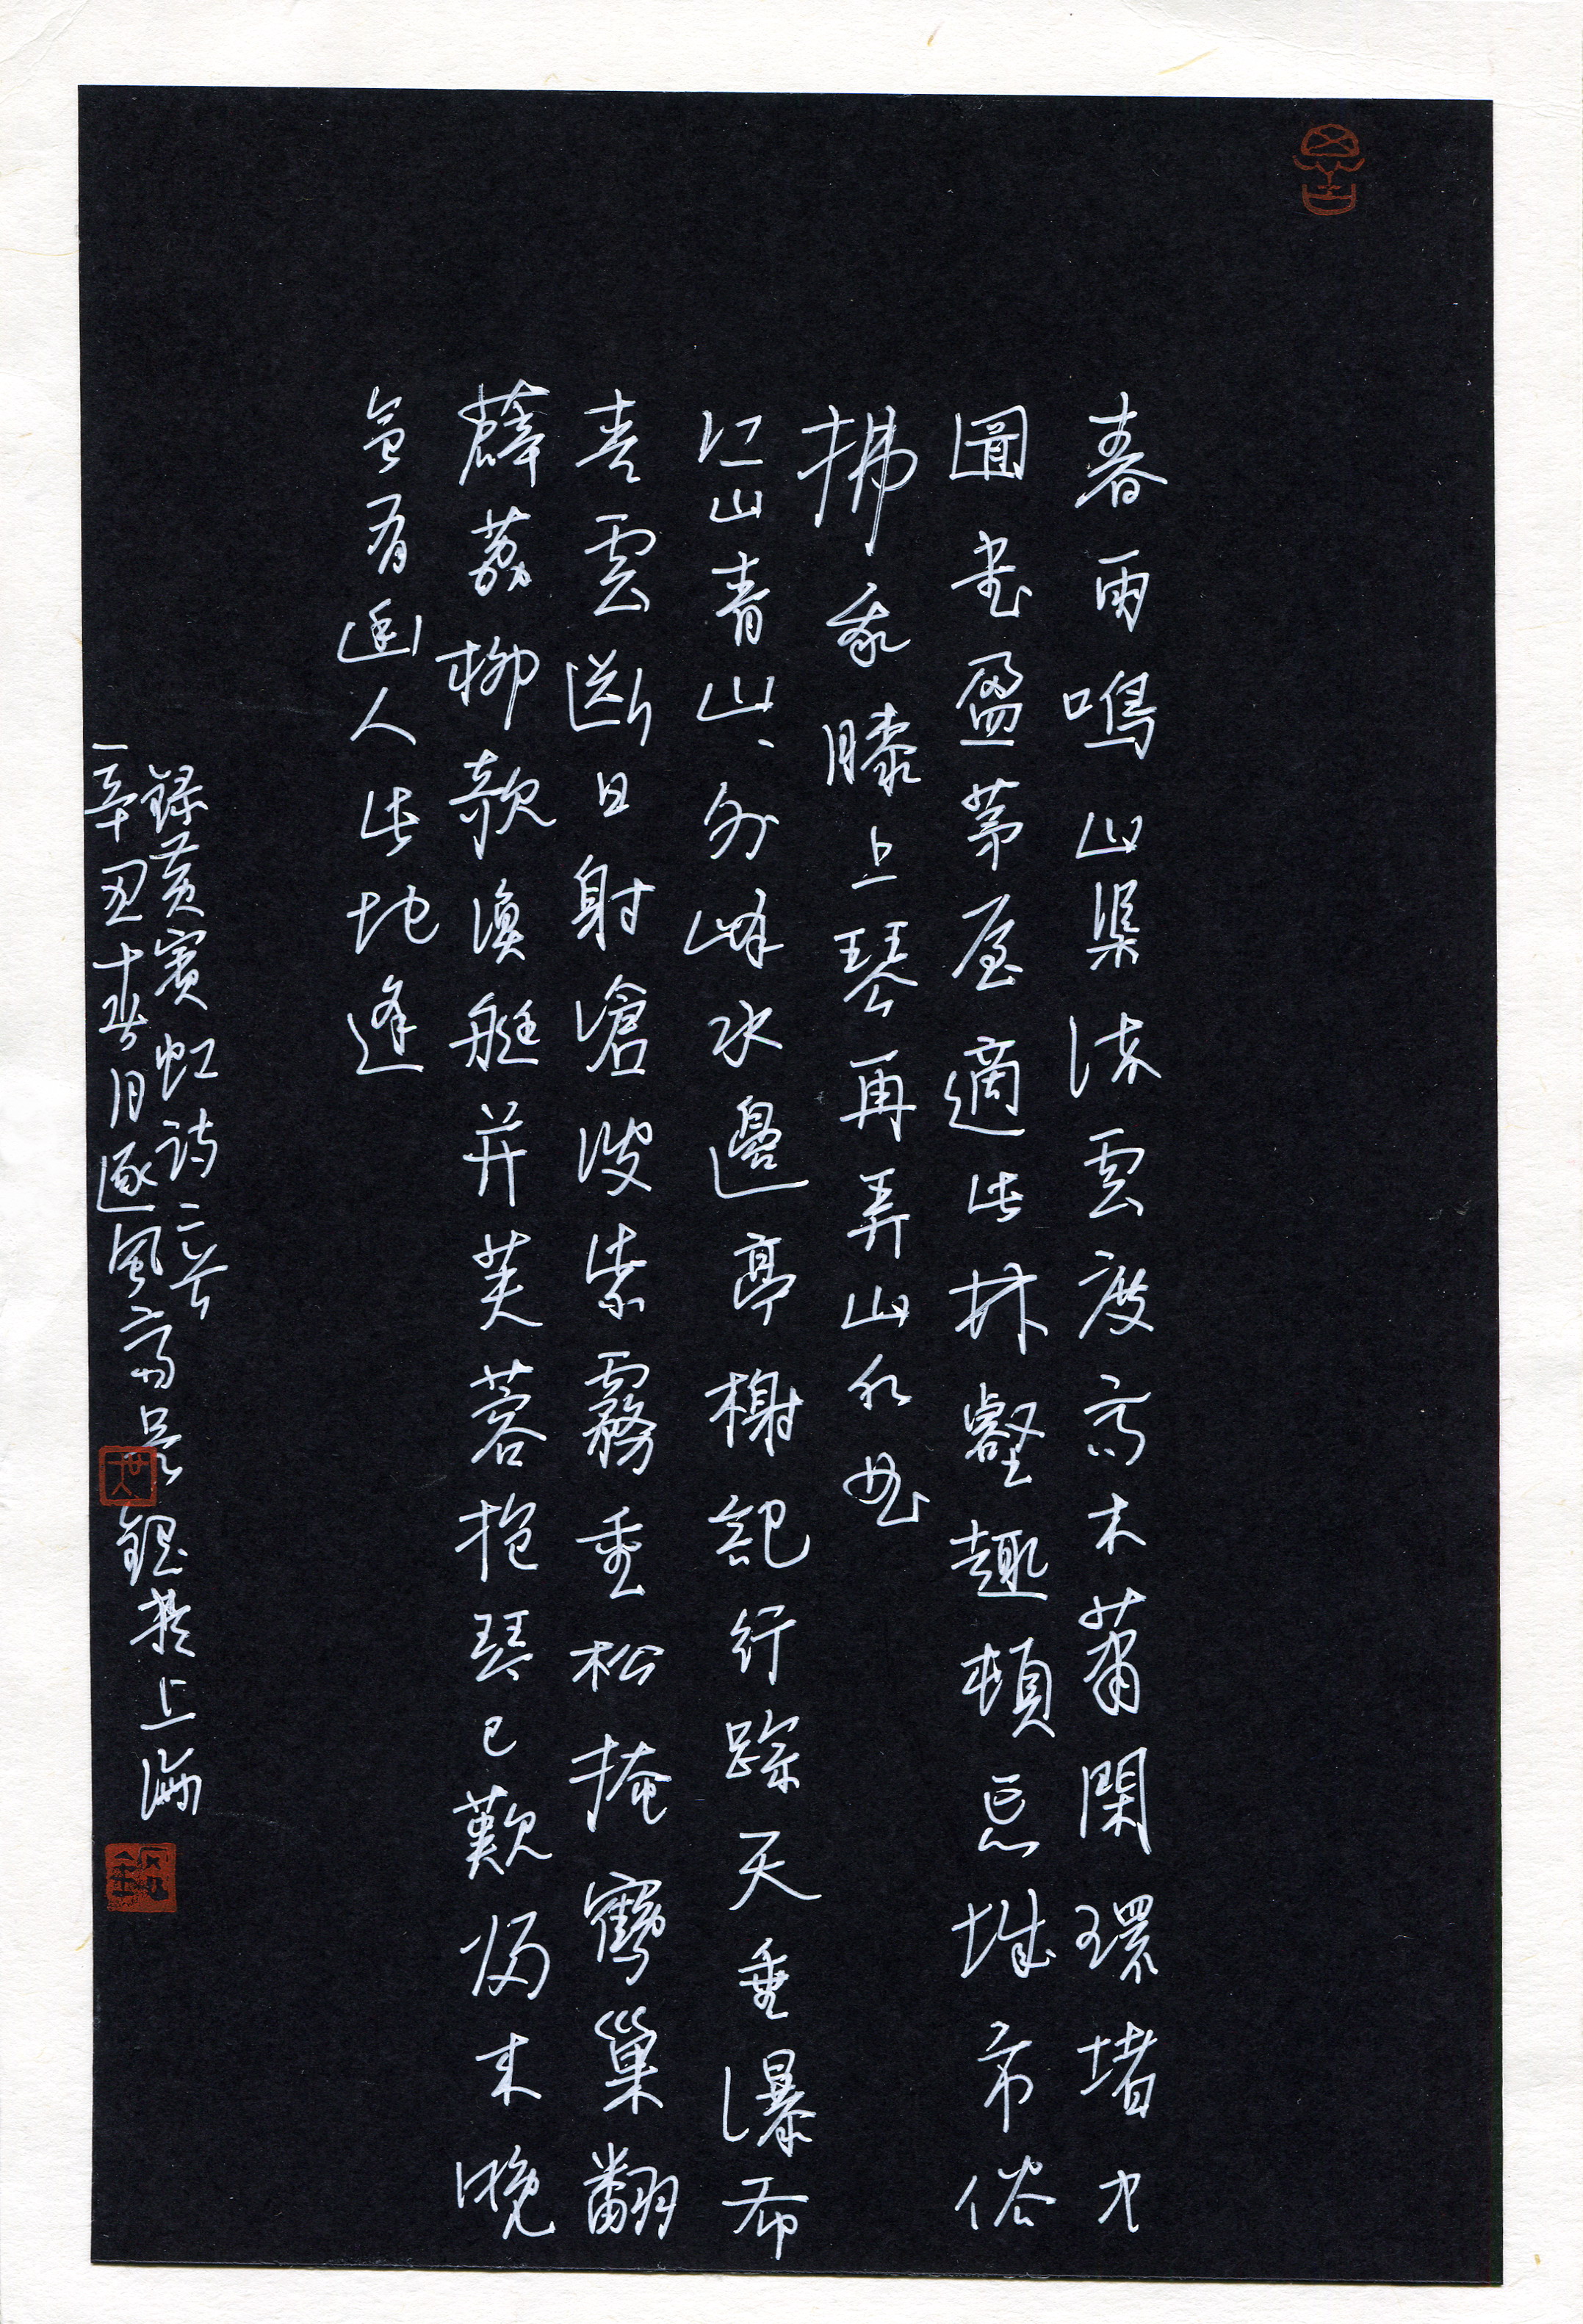 春雨鳴山渠流雲度高木蕭閑環堵中
圖書盈茅屋適此林壑趣頓忘城市俗
拂我膝上琴再弄山水曲
江山青山、外峰水邊亭榭記行踪天垂瀑布
青雲斷日射滄波紫霧重松掩鶴巢翻
薜荔柳欹漁艇并芙蓉抱琴已歎歸來晚
會有幽人此地逢
錄黃賓虹詩二首
辛丑十月逐風齋吴於上海